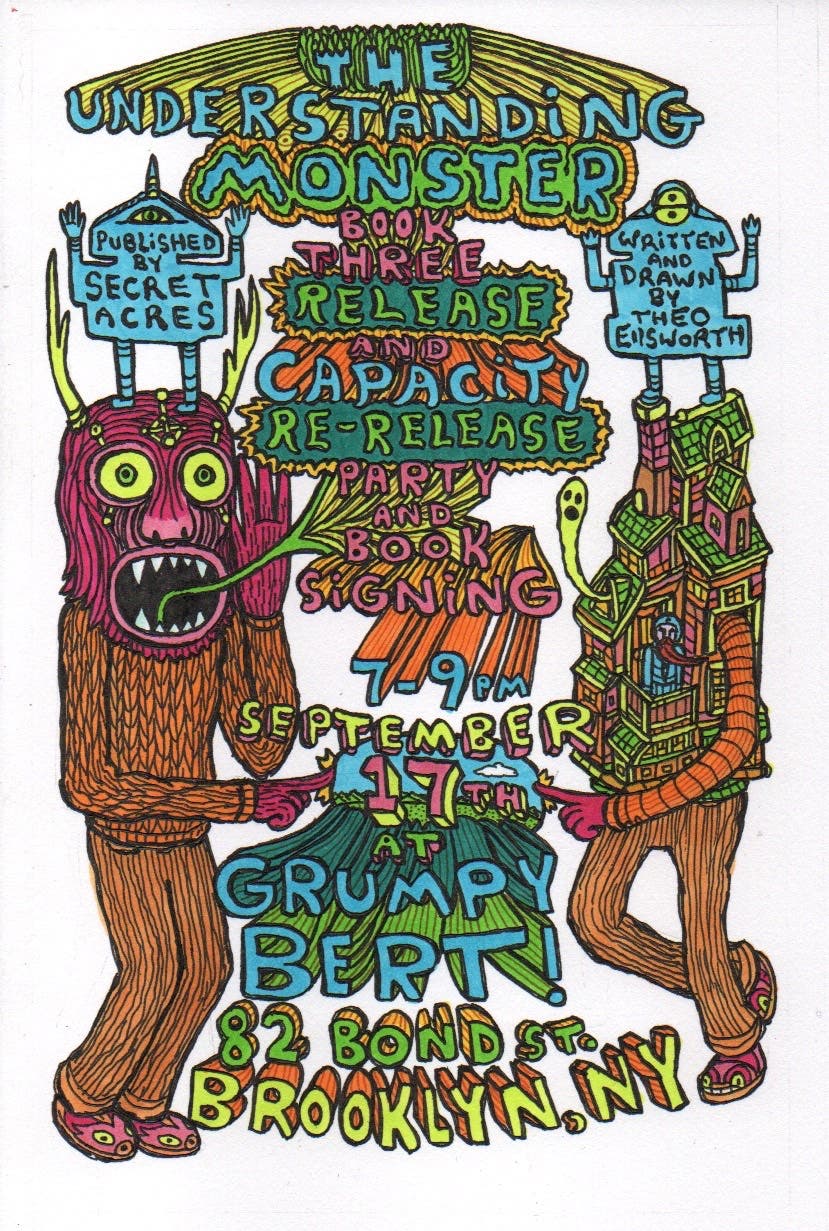 THE
UNDERSTANDiNG
MONSTER
PUBLISHED
BY
SECRET
ACRES
WRITTEN
AND
DRAWN
BY
THEO
EllSWORTH
BOOK
THREE
RELEASE
AND
CAPACiTY
RE-RELEASE
PARTY
AND
BOOK
SiGNiNG
7-9PM
SEPTEMBER
17TH
AT
GRUMPY
BERT!
82 BOND ST.
BROOKLYN, NY